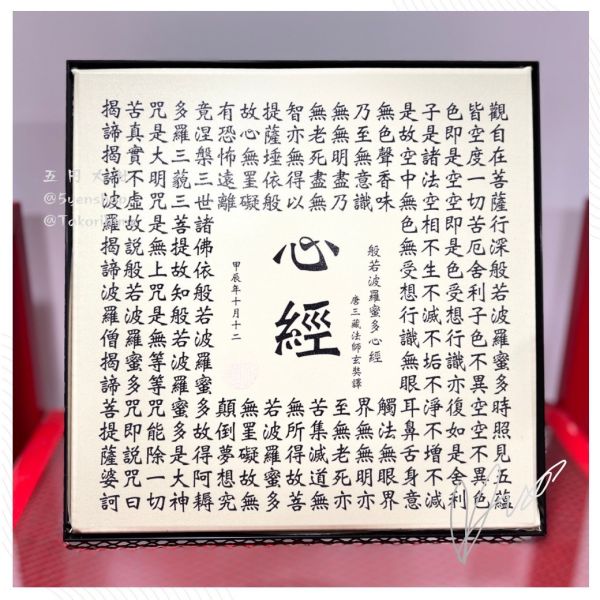 觀自在菩薩行深般若波羅蜜多時照見五蘊
皆空度一切苦厄舍利子色不異空空不異色
色即是空空即是色受想行識亦復如是舍利
子是諸法空相不生不滅不垢不淨不增不減
是故空中無色無受想行識無眼耳鼻舌身意
無色聲香味
觸法無眼界
乃至無意識
界無無明亦
無無明盡乃
至無老死亦
無老死盡無
苦集滅道無
智亦無得以
無所得故菩
提薩埵依般
若波羅蜜多
故心無罣礙
無罣礙故無
有恐怖遠離
顛倒夢想究
竟涅槃三世諸佛依般若波羅蜜多故得阿耨
多羅三藐三菩提故知般若波羅蜜多是大神
咒是大明咒是無上咒是無等等咒能除一切
苦真實不虛故說般若波羅蜜多咒即說咒曰
揭諦揭諦波羅揭諦波羅僧揭諦菩提薩婆訶
般若波羅蜜多心經
唐三藏法師玄奘譯
心經
甲辰年十月十二
五月